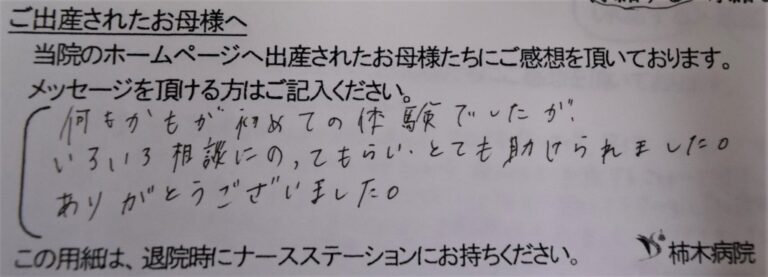 ご出産されたお母様へ
当院のホームページへ出産されたお母様たちにご感想を頂いております。
メッセージを頂ける方はご記入ください。
何もかもが初めての体験でしたが、
いろいろ相談にのってもらい、とても助けられました。
ありがとうございました。
この用紙は、退院時にナースステーションにお持ちください。
柿木病院